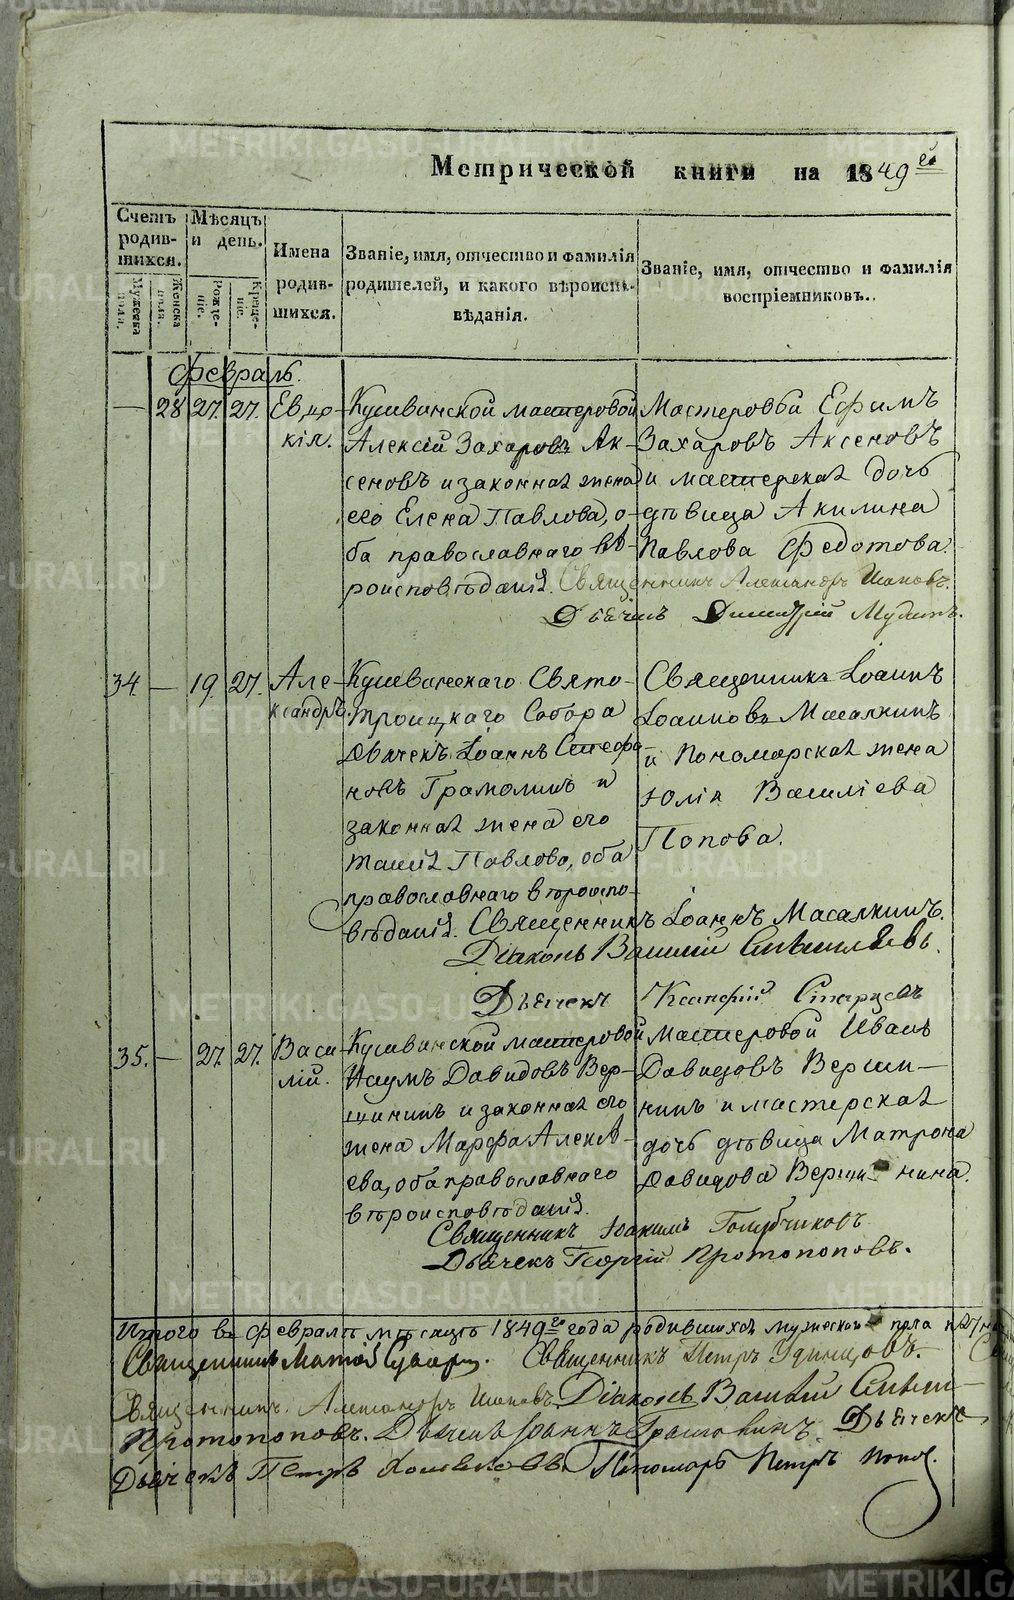 Метрической книги на 1849 ей
Счетъ родившихся.
Мѣсяцъ и день.
Имена родившихся.
Званіе, имя, отчество и фамилія родителей, и какого вѣроисповѣданія.
Званіе, имя, отчество и фамилія воспріемниковъ.
Мужеска пола.
Женска пола.
Рожденіе.
Крещеніе.
Февраль.
— 28 27. 27. Евдо-
кія.
Кушвинской мастеровой
Алексій Захаровъ Ак-
сеновъ и законная жена
его Елена Павлова, о-
ба православнаго вѣ-
роисповѣданія.
Мастеровой Ефимъ
Захаровъ Аксеновъ
и мастерская дочь
дѣвица Акилина
Павлова Федотова.
Священникъ Александръ
Дьячекъ Димитрій
34. — 19. 27. Але-
ксандръ.
Кушвинскаго Свято-
троицкаго Собора
Дьячекъ Іоаннъ Стефа-
новъ Грамолинъ и
законная жена его
Таисія Павлова, оба
православнаго вѣроиспо-
вѣданія.
Священникъ Іоаннъ
Іоанновъ Масалкинъ
и Пономарская жена
Юлія Василіева
Попова.
Священникъ Іоаннъ Масалкинъ.
Діаконъ Василій
Дьячекъ Ксанфій Старцевъ
35. — 27. 27. Васи-
лій.
Кушвинской мастеровой
Наумъ Давидовъ Вер-
шининъ и законная его
жена Марфа Алексѣ-
ева, оба православнаго
вѣроисповѣданія.
Мастеровой Иванъ
Давидовъ Верши-
нинъ и мастерская
дочь дѣвица Матрона
Давидова Верши-нина.
Священникъ Іоакимъ Голубчиковъ
Дьячекъ Георгій Протопоповъ.
Итого въ февралѣ мѣсяцѣ 1849го года родившихся мужеска пола
Священникъ Матѳій Священникъ Петръ Удинцовъ.
Священникъ Александръ Діаконъ Василій
Протопоповъ. Дьячекъ Іоаннъ Грамолинъ. Дьячекъ
Дьячекъ Петръ Пономарь Петръ Попов.
METRIKI.GASO-URAL.RU